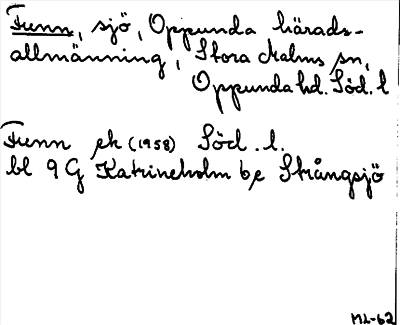 Tunn, sjö, Oppunda härads-
allmänning, Stora Malms sn,
Oppunda hd. Söd. l
Tunn ek (1958) Söd. l.
bl 9 G Katrineholm be Strångsjö
ML-62